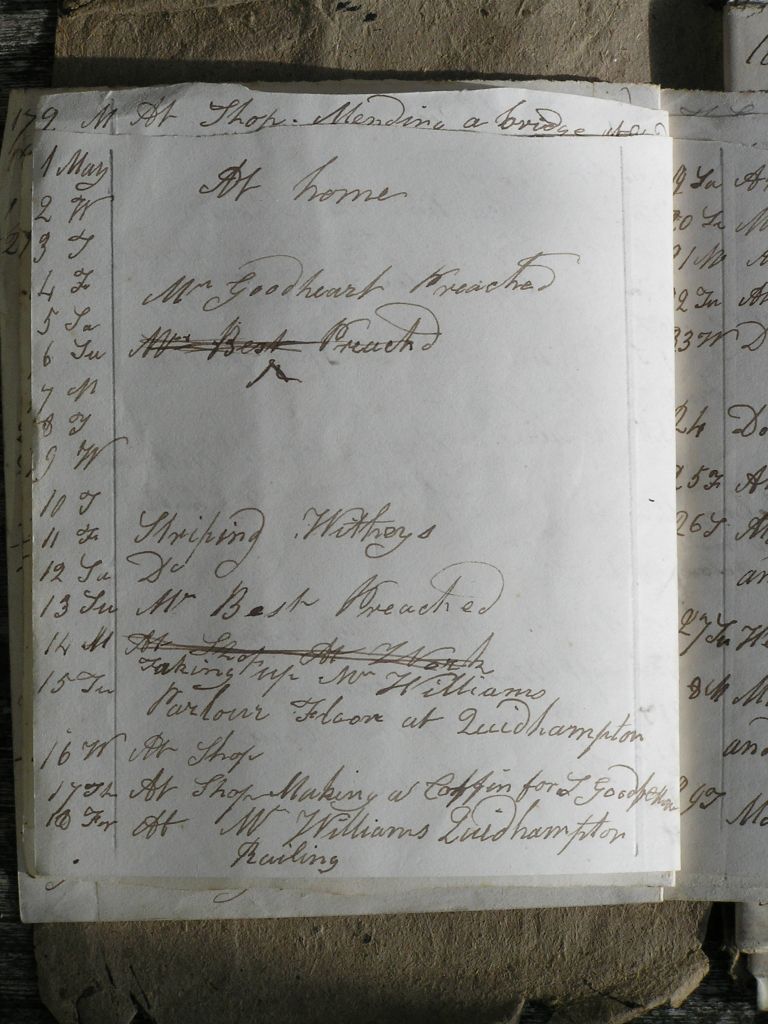 9 M At Shop. Mending a bridge
1 May
At home
2 W
3 T
4 F Mr Goodheart Preached
5 Sa
6 Su Mr Best Preachd
7 M
8 T
9 W
10 T
11 F Striping Witheys
12 Sa Do
13 Su Mr Best Preached
14 M At Shop At Work
15 Tu Taking up Mr Williams
Parlour Floor at Quidhampton
16 W At Shop
17 Th At Shop Making a Coffin for
18 Fr At Mr Williams Quidhampton
Railing
19 Sa
20 Su
21 M
22 Tu
23 W D
24 Do
25 F
26 S
an
27 Su
28 M
and
29 T